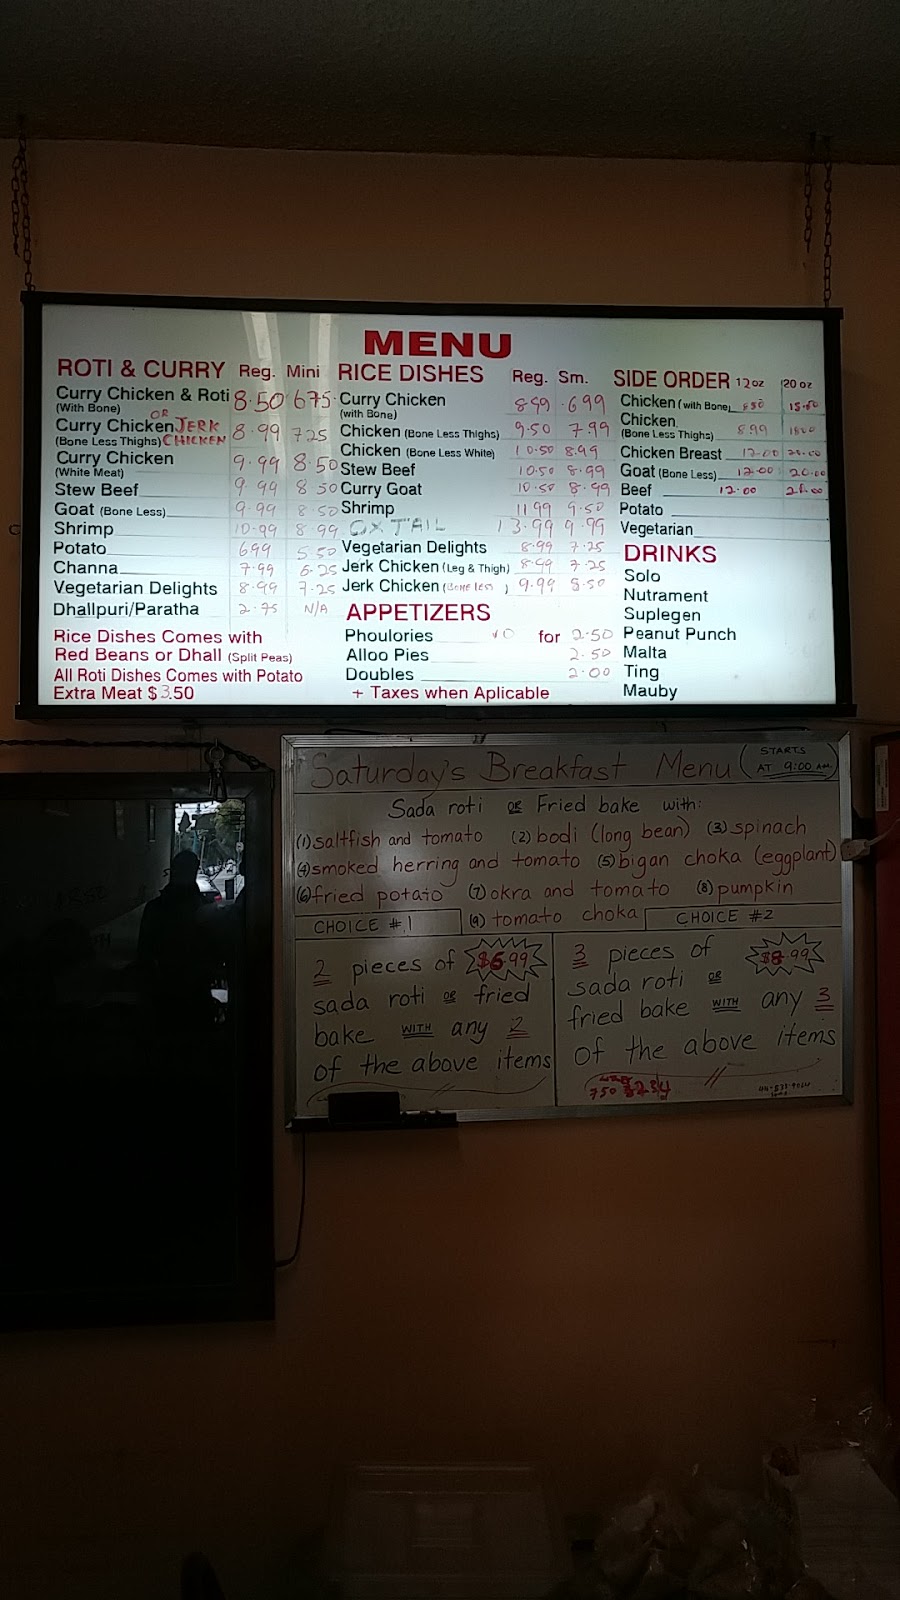 MENU
ROTI & CURRY Reg. Mini
Curry Chicken & Roti 8.50 6.75
(With Bone)
OR
Curry Chicken JERK 8.99 7.25
(Bone Less Thighs) CHICKEN
Curry Chicken 9.99 8.50
(White Meat)
Stew Beef 9.99 8.50
Goat (Bone Less) 9.99 8.50
Shrimp 10.99 8.99
Potato 6.99 5.50
Channa 7.99 6.25
Vegetarian Delights 8.99 7.25
Dhallpuri/Paratha 2.75 N/A
Rice Dishes Comes with
Red Beans or Dhall (Split Peas)
All Roti Dishes Comes with Potato
Extra Meat $3.50
RICE DISHES Reg. Sm.
Curry Chicken 8.99 6.99
(with Bone)
Chicken (Bone Less Thighs) 9.50 7.99
Chicken (Bone Less White) 10.50 8.99
Stew Beef 10.50 8.99
Curry Goat 10.50 8.99
Shrimp 11.99 9.50
OX TAIL 13.99 9.99
Vegetarian Delights 8.99 7.25
Jerk Chicken (Leg & Thigh) 8.99 7.25
Jerk Chicken (Bone less) 9.99 8.50
APPETIZERS
Phoulories for 2.50
Alloo Pies 2.50
Doubles 2.00
+ Taxes when Aplicable
SIDE ORDER 12oz 20 oz
Chicken (with Bone)
Chicken 8.99
(Bone Less Thighs)
Chicken Breast 12.00 20.00
Goat (Bone Less) 12.00 20.00
Beef 12.00 20.00
Potato
Vegetarian
DRINKS
Solo
Nutrament
Suplegen
Peanut Punch
Malta
Ting
Mauby
Saturday's Breakfast Menu (STARTS AT 9:00 AM.)
Sada roti OR Fried bake with:
(1) saltfish and tomato (2) bodi (long bean) (3) spinach
(4) smoked herring and tomato (5) bigan choka (eggplant)
(6) fried potato (7) okra and tomato (8) pumpkin
(9) tomato choka
CHOICE #1
2 pieces of $6.99
sada roti OR fried
bake WITH any 2
of the above items
CHOICE #2
3 pieces of $8.99
sada roti OR
fried bake WITH any 3
of the above items
750